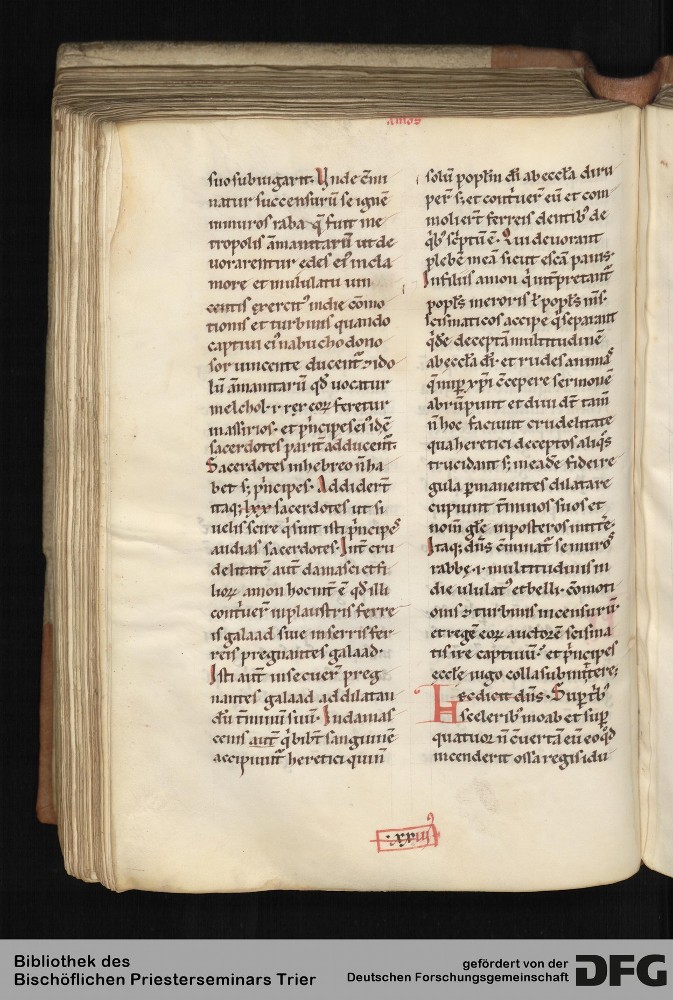 amos
suo subiugarit. Unde c̄mi
natur succensurū se ignē
in muros raba q̄ fuit me
tropolis ām̄anitarū ut de
vorarentur edes eiꝰ in cla
more et in ululatu vin
centis exercitꝰ in die cōmo
tionis et turbinis quando
captivi eiꝰ nabuchodono
sor vincente ducent᷑ ⁊ ido
lū ām̄anitarū qd̄ vocatur
melchol .i. rex eoꝝ feretur
in assirios. et p̄ncipes eiꝰ idē
sacerdotes parit᷑ adducent᷑.
Sacerdotes in hebreo n̄ ha
bet sꝫ p̄ncipes. Addidert̄
itaqꝫ lxx sacerdotes ut si
velis scire q̇ sint isti p̄ncipes
audias sacerdotes. Int̄ cru
delitatē aut̄ damasci et fi
lioꝝ amon hoc int̄ ē qd̄ illi
cont̓ver̄ in plaustris ferre
is galaad sive in serris fer
reis pregnantes galaad.
Isti aut̄ insecuer̄ preg
nantes galaad ad dilatan
dū t̄minū suū. In damas
cenis aut̄ q̇ bibt̄ sanguinē
accipiunt᷑ heretici qui n̄
solū popłm dī ab eccła diru
per̄ sꝫ et cont̓ver̄ eū et com
molier̄t ferreis dentibꝰ de
q̇bꝰ sc̓ptū ē. Qui devorant
plebē meā sicut escā panis.
In filiis amon q̇ int̓pretant᷑
popłs meroris ł popłs m̄s.
scismaticos accipe q̇ separant
q̇de deceptā multitudinē
ab eccła dī. et rudes animas
q̄ nup̱ xp̄i c̄cepere sermonē
abrūpunt et dum dn̄t tam̄
n̄ hoc faciunt crudelitate
qua heretici deceptos aliqͦs
trucidant sꝫ in eadē fidei re
gula p̱manentes dilatare
cupiunt t̄minos suos et
nom̄ gl̄e in posteros mitt̓e.
Itaqꝫ dn̄s c̄minat᷑ se muros
rabbę .i. multitudinis in
die ululatꝰ et belli. cōmoti
onis ⁊ turbinis incensurū.
et regē eoꝝ auctorē scisma
tis ire captivū. et p̄ncipes
eccłe iugo colla submitt̓e;
Hec dicit dn̄s. Sup̱ tbꝰ
sceleribꝰ moab et sup̱
quatuor n̄ c̄vertā eū eo qd̄
incenderit ossa regis idu
.xxiiiꝰ
Bibliothek des
Bischöflichen Priesterseminars Trier
gefördert von der
Deutschen Forschungsgemeinschaft
DFG